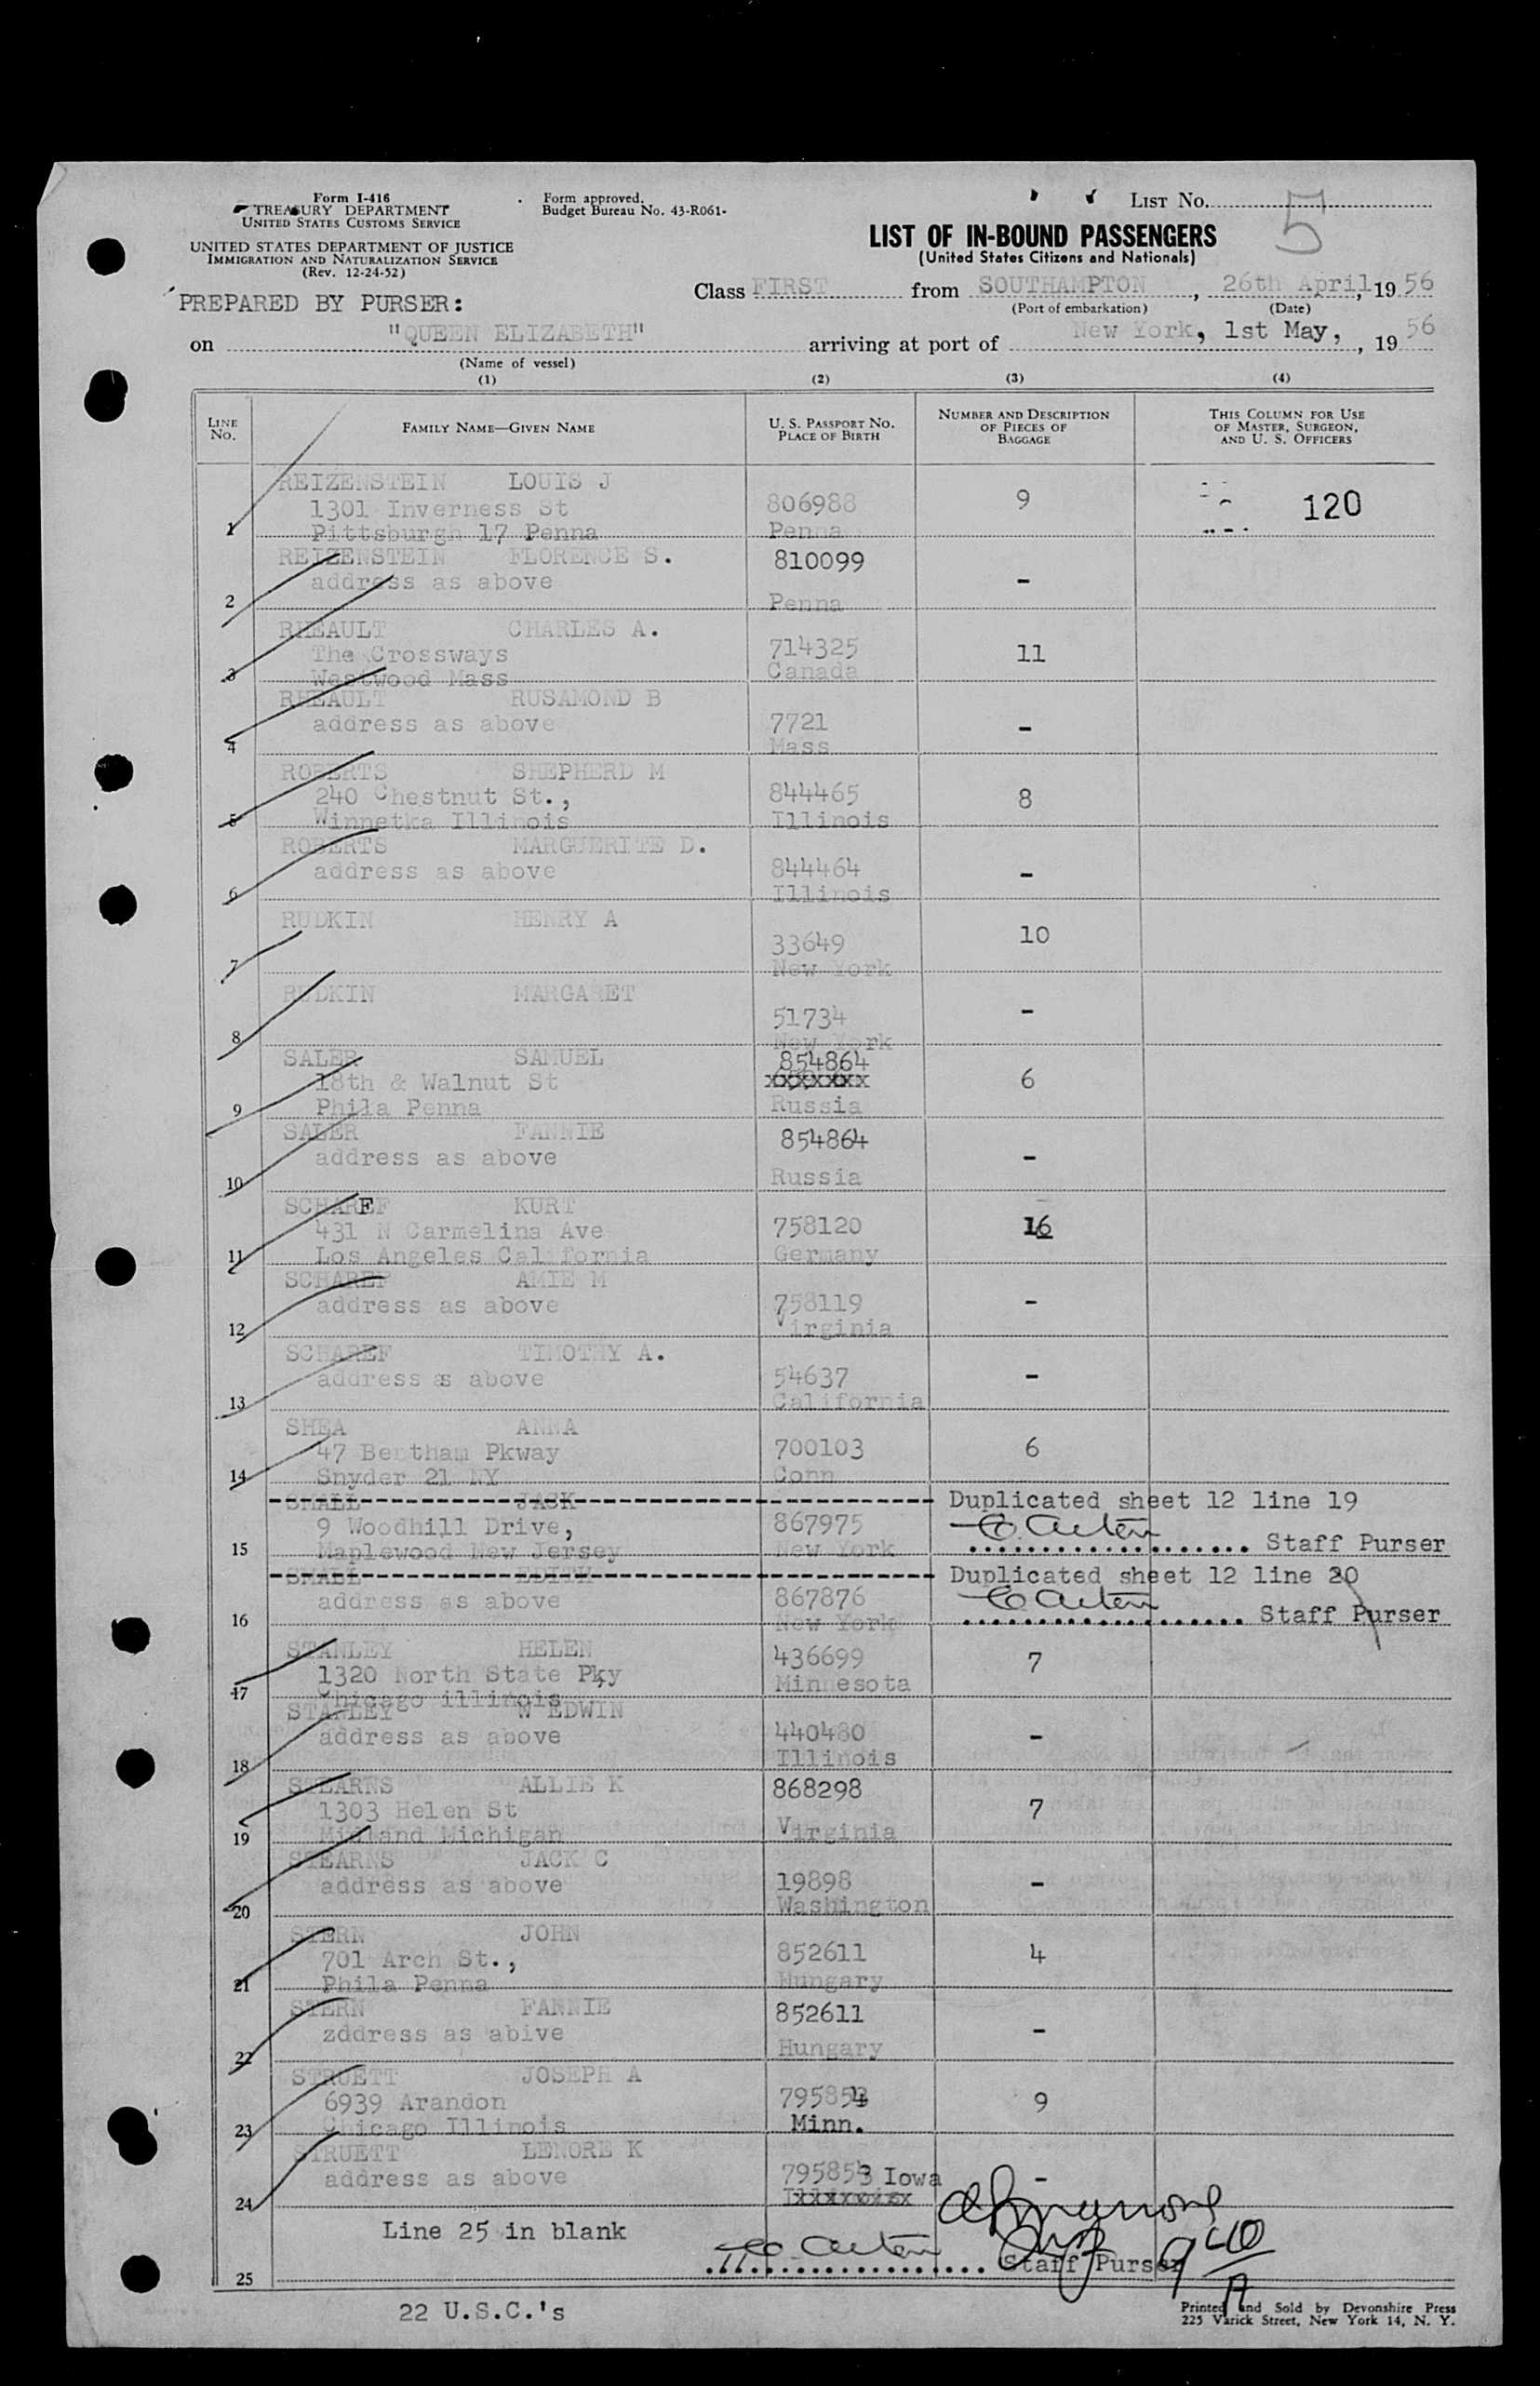 Form I-416
TREASURY DEPARTMENT
UNITED STATES CUSTOMS SERVICE
UNITED STATES DEPARTMENT OF JUSTICE
IMMIGRATION AND NATURALIZATION SERVICE
(Rev. 12-24-52)
PREPARED BY PURSER:
Form approved.
Budget Bureau No. 43-R061-
LIST NO. 5
LIST OF IN-BOUND PASSENGERS
(United States Citizens and Nationals)
Class FIRST from SOUTHAMPTON, 26th April, 19 56
(Port of embarkation) (Date)
on "QUEEN ELIZABETH" arriving at port of New York, 1st May, , 19 56
(Name of vessel)
(1) (2) (3) (4)
LINE NO. FAMILY NAME—GIVEN NAME U. S. PASSPORT NO. PLACE OF BIRTH NUMBER AND DESCRIPTION OF PIECES OF BAGGAGE THIS COLUMN FOR USE OF MASTER, SURGEON, AND U. S. OFFICERS
REIZENSTEIN LOUIS J
1301 Inverness St 806988 9 120
1 Pittsburgh 17 Penna Penna
REIZENSTEIN FLORENCE S. 810099
address as above -
2 Penna
RHEAULT CHARLES A.
The Crossways 714325 11
3 Westwood Mass Canada
RHEAULT RUSAMOND B
address as above 7721 -
4 Mass
ROBERTS SHEPHERD M
240 Chestnut St., 844465 8
5 Winnetka Illinois Illinois
ROBERTS MARGUERITE D.
address as above 844464 -
6 Illinois
RUDKIN HENRY A
33649 10
7 New York
RUDKIN MARGARET
51734 -
8 New York
SALER SAMUEL 854864
18th & Walnut St xxxxxxx 6
9 Phila Penna Russia
SALER FANNIE 854864
address as above -
10 Russia
SCHAREF KURT
431 N Carmelina Ave 758120 16
11 Los Angeles California Germany
SCHAREF AMIE M
address as above 758119 -
12 Virginia
SCHAREF TIMOTHY A.
address as above 54637 -
13 California
SHEA ANNA
47 Bentham Pkway 700103 6
14 Snyder 21 NY Conn
SMALL JACK Duplicated sheet 12 line 19
9 Woodhill Drive, 867975
15 Maplewood New Jersey New York Staff Purser
SMALL EDITH Duplicated sheet 12 line 20
address as above 867876
16 New York Staff Purser
STANLEY HELEN 436699
1320 North State Pky Minnesota 7
17 Chicago illinois
STANLEY W EDWIN
address as above 440480 -
18 Illinois
STEARNS ALLIE K 868298
1303 Helen St 7
19 Midland Michigan Virginia
STEARNS JACK C
address as above 19898 -
20 Washington
STERN JOHN
701 Arch St., 852611 4
21 Phila Penna Hungary
STERN FANNIE 852611
zddress as abive -
22 Hungary
STRUETT JOSEPH A
6939 Arandon 795854 9
23 Chicago Illinois Minn.
STRUETT LENORE K
address as above 795853 Iowa -
24
Line 25 in blank
25 Staff Purser 9 40 A
22 U.S.C.'s
Printed and Sold by Devonshire Press
225 Varick Street, New York 14, N. Y.